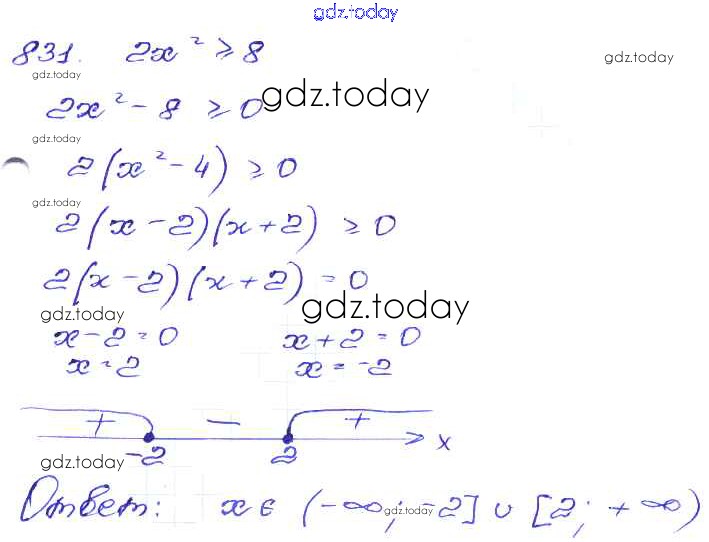 gdz.today
831. 2x² ≥ 8
gdz.today gdz.today
2x² - 8 ≥ 0 gdz.today
gdz.today
2(x² - 4) ≥ 0
gdz.today
2(x - 2)(x + 2) ≥ 0
2(x - 2)(x + 2) = 0
gdz.today gdz.today
x - 2 = 0 x + 2 = 0
x = 2 x = -2
+ - +
-2 2 x
gdz.today
Ответ: x ∈ (-∞; -2] ∪ [2; +∞)
gdz.today